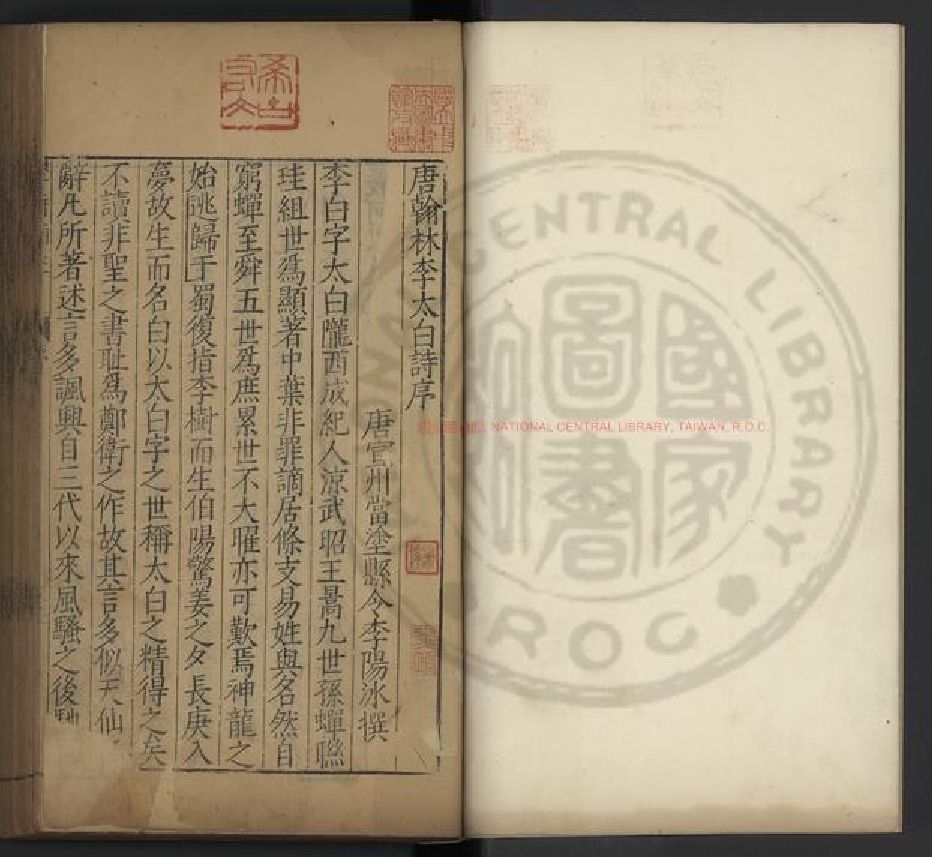 唐翰林李太白詩序
唐宣州當塗縣令李陽冰撰
李白字太白隴西成紀人涼武昭王暠九世孫蟬聮
珪組世爲顯著中葉非罪謫居條支易姓與名然自
窮蟬至舜五世爲庶累世不大曜亦可歎焉神龍之
始逃歸于蜀復指李樹而生伯陽驚姜之夕長庚入
夢故生而名白以太白字之世稱太白之精得之矣
不讀非聖之書恥爲鄭衛之作故其言多似天仙
辭凡所著述言多諷興自三代以來風騷之後
CENTRAL LIBRARY
ROC
國家圖書
NATIONAL CENTRAL LIBRARY, TAIWAN R.O.C.